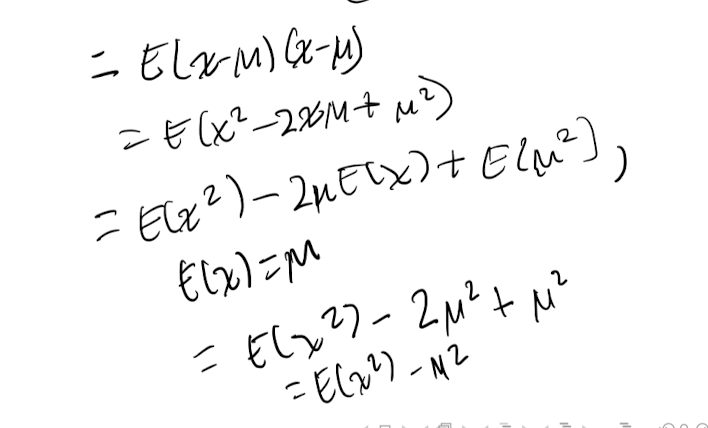 = E(x-μ)(x-μ)
= E(x²-2xμ+μ²)
= E(x²)-2μE(x)+E(μ²),
E(x)=μ
= E(x²)-2μ²+μ²
= E(x²)-μ²